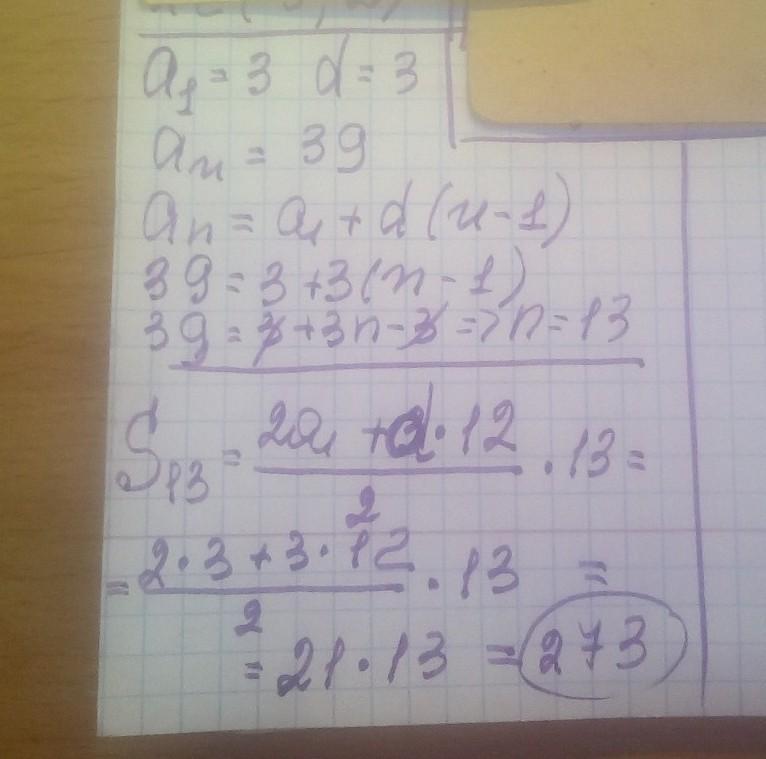 a₁ = 3 d = 3
aₙ = 39
aₙ = a₁ + d (n-1)
39 = 3 + 3(n-1)
39 = 3 + 3n - 3 => n = 13
S₁₃ = (2a₁ + d·12)/2 · 13 =
= (2·3 + 3·12)/2 · 13 =
= 21·13 = 273